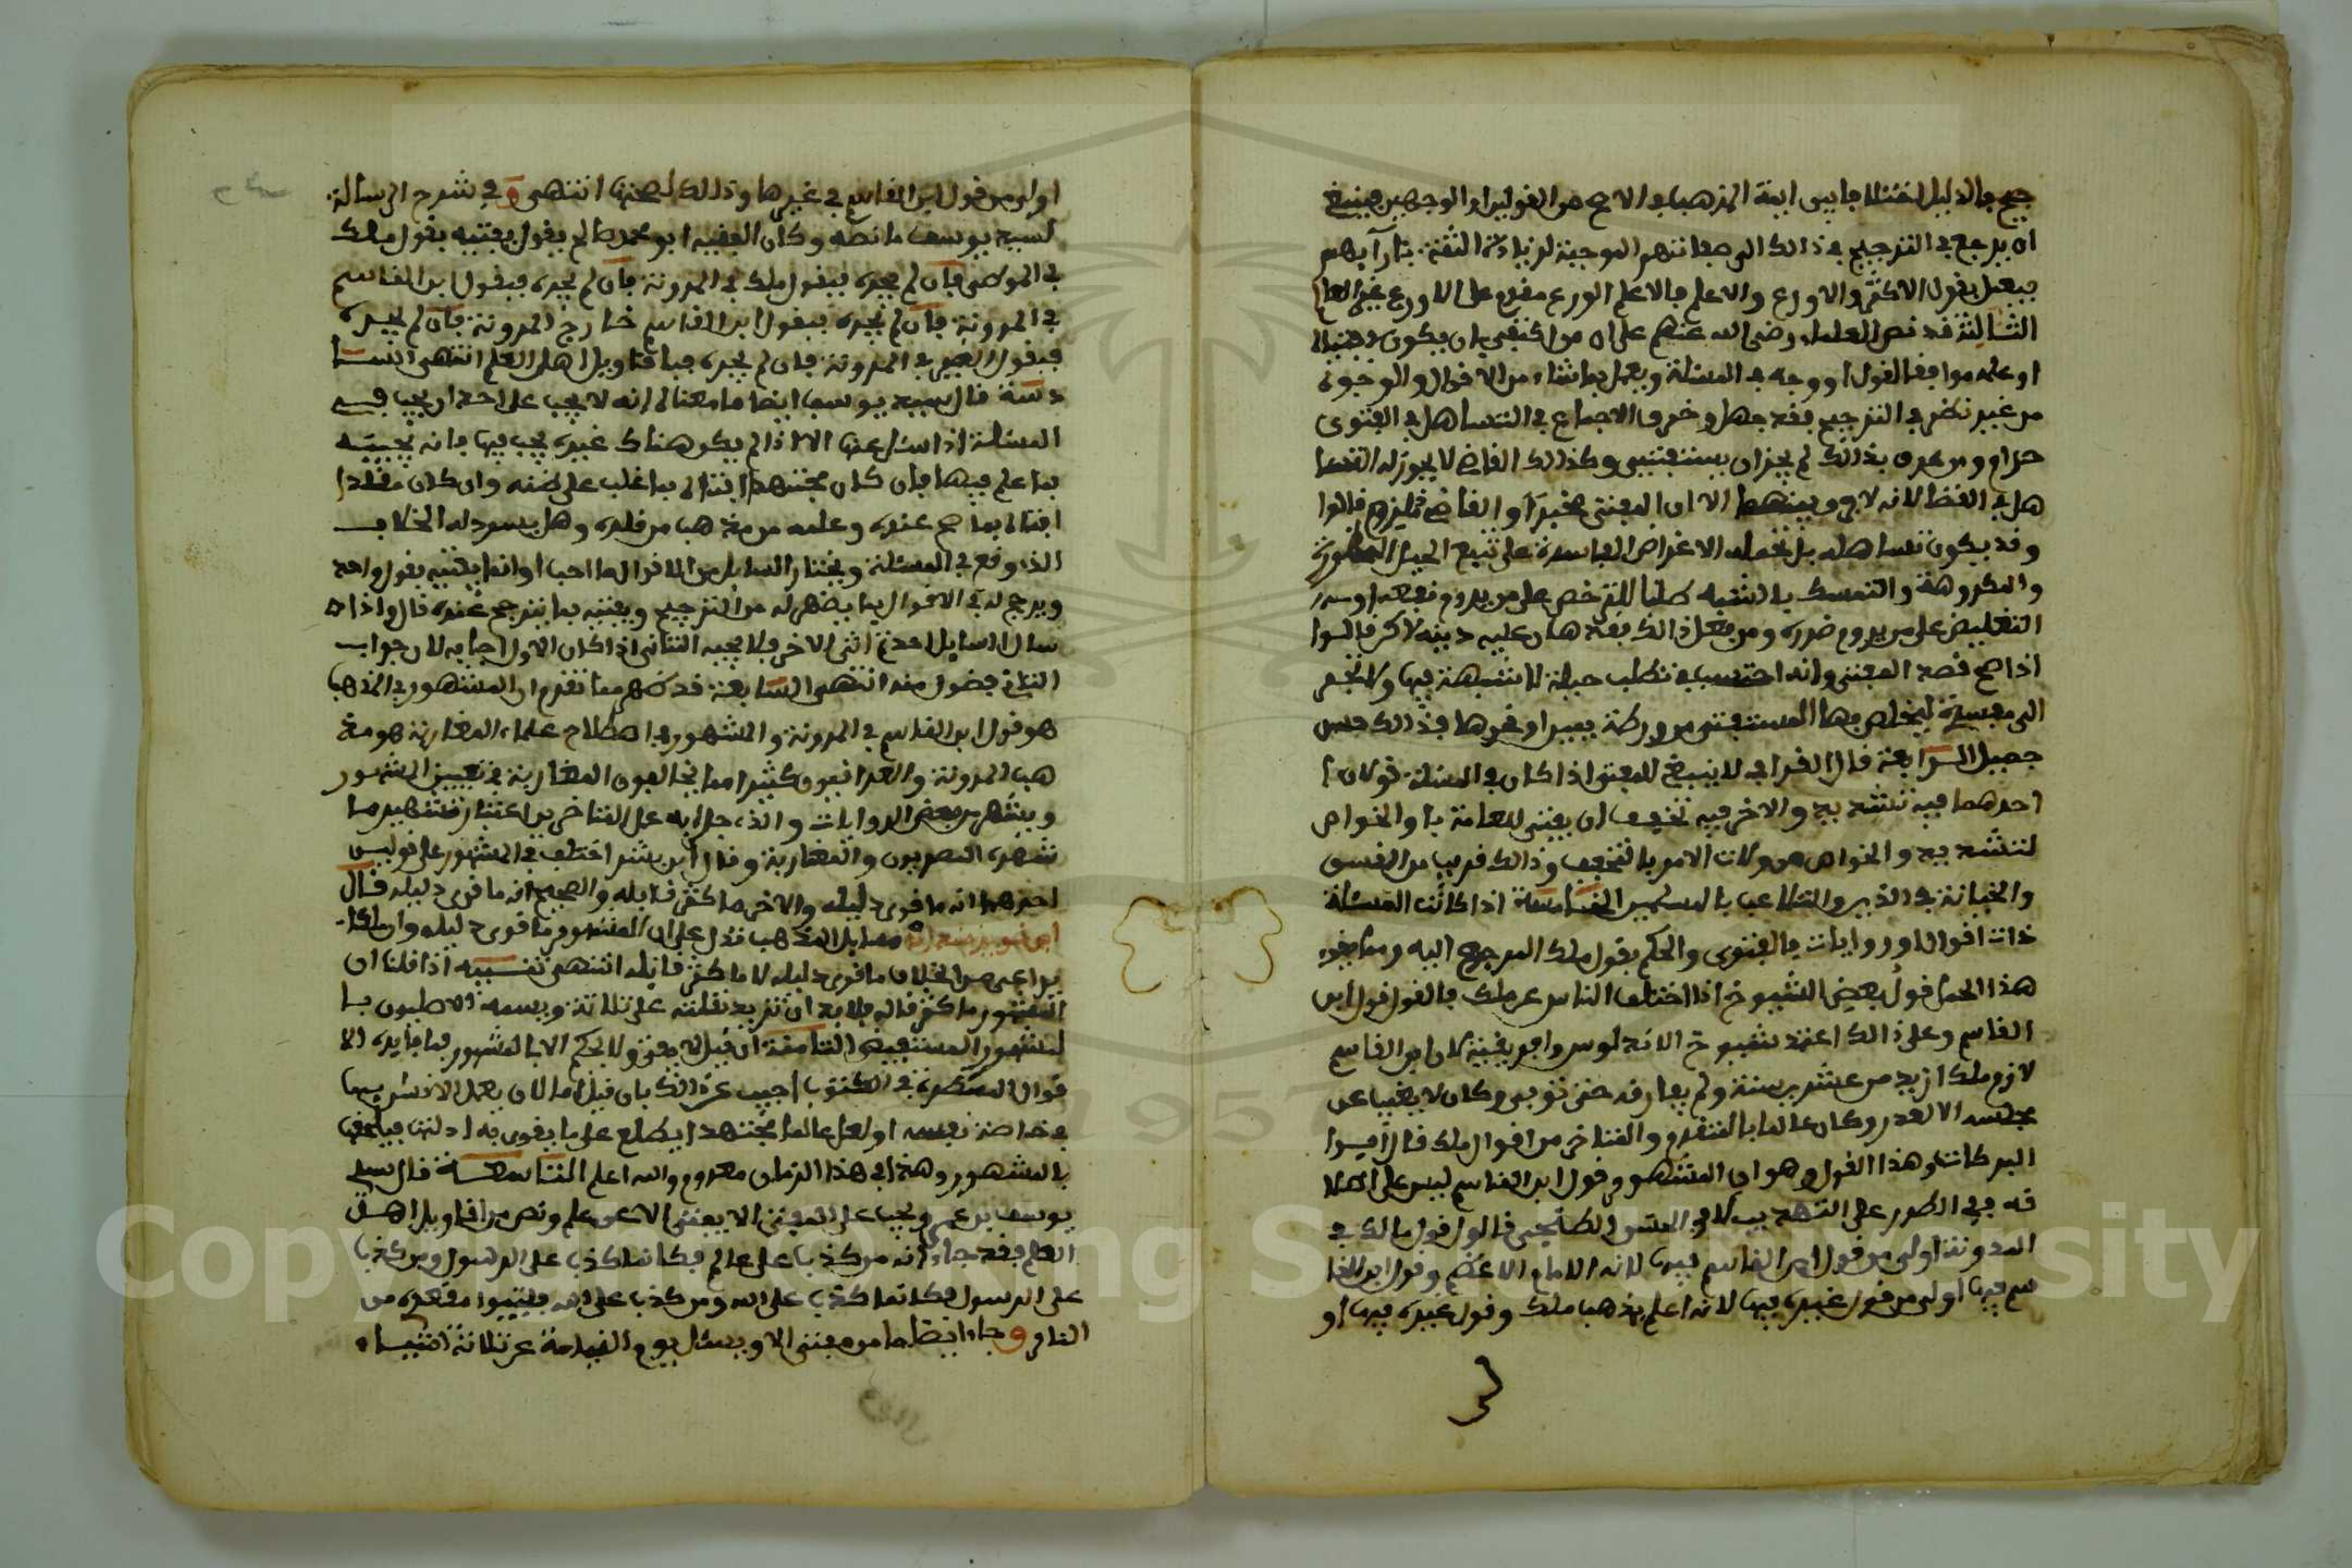 جيح بالدليل اختلافا بين ايمة المذهب في الاصح من القولين او الوجهين فينبغي
ان يرجع في الترجيح في ذالك الى صفاتهم الموجبة لزيادة الثقة بآرآيهم
فيعمل بقول الاكثر والاورع والاعلم فالاعلم الورع مقدم على الاورع غير العالم
الثالثة قد نص العلماء رضي الله عنهم على ان من اكتفى بان يكون فتياه
او علمه موافقا لقول او وجه في المسئلة ويعمل بما شاء من الاقوال والوجوه
من غير نظر في الترجيح فقد جهل وخرق الاجماع في التساهل في الفتوى
حرام ومن عرف بذالك لم يجز ان يستفتى وكذالك القاضي لا يجوز له التسا
هل في القضا لانه لا فرق بينهما الا ان المفتي مخبر والقاضي ملزم قالوا
وقد يكون تساهله بان تحمله الاغراض الفاسدة على تتبع الحيل المحظورة
والمكروهة والتمسك بالشبه طلبا للترخص على من يروم نفعه او
التغليظ على من يروم ضرره ومن فعل ذالك فقد هان عليه دينه لاكن قالوا
اذا صح قصد المفتي وانه احتسب في تطلب حيلة لا شبهة فيها ولا تجر
الى مفسدة ليخلص بها المستفتي من ورطة يمين او نحوها فذالك حسن
جميل الرابعة قال القرافي لا ينبغي للمفتي اذا كان في المسئلة قولان
احدهما فيه تشديد والاخر فيه تخفيف ان يفتي للعامة با والخواص
لتشديد والخواص من ولات الامر بالتخفيف وذالك قريب من الفسق
والخيانة في الدين والتلاعب بالمسلمين الخامسة اذا كانت المسئلة
ذات اقوال او روايات فالفتوى والحكم بقول ملك المرجوع اليه ومما يقوي
هذا المحل قول بعض الشيوخ اذا اختلف الناس عن ملك فالقول قول ابن
القاسم وعلى ذالك اعتمد شيوخ الاندلوس وافريقية لان ابن القاسم
لازم ملك ازيد من عشرين سنة ولم يفارقه حتى توفي وكان لا يغيب عن
مجلسه الا لعذر وكان عالما بالمتقدم والمتاخر من اقوال ملك قال ابو
البركات وهذا القول وهو ان المشهور قول ابن القاسم ليس على اطلا
قه ففي الطرر على التهذيب لابي الحسن الطنجي قالوا قول مالك في
المدونة اولى من قول ابن القاسم فيها لانه الامام الاعظم وقول ابن القا
سم فيها اولى من قول غيره فيها لانه اعلم بمذهب ملك وقول غيره فيها او
اولى من قول ابن القاسم في غيرها وذالك لصحتها انتهى وفي شرح الرسالة
لسيد يوسف ما نصه وكان الفقيه ابو محمد صالح يقول يفتيه بقول ملك
في الموطى فان لم يجده فبقول ملك في المدونة فان لم يجده فبقول ابن القاسم
في المدونة فان لم يجده فبقول ابن القاسم خارج المدونة فان لم يجده
فبقول الغير في المدونة فان لم يجده فباقاويل اهل العلم انتهى السا
دسة قال سيد يوسف ايضا ما معناه انه لا يجب على احد ان يجيب في
المسئلة اذا سئل عنها الا اذا لم يكن هناك غيره يجيب فيها فانه يجيبه
بما علم فيها فان كان مجتهدا افتاه بما غلب على ظنه وان كان مقلدا
افتاه بما صح عنده وعلمه من مذهب من قلده وهل يسرد له الخلاف
الذي وقع في المسئلة ويختار السايل من الاقوال ما احب او انما يفتيه بقول واحد
ويرجح له في الاقوال بما يظهر له من الترجيح ويفتيه بما يترجح عنده قال واذا
سال السايل احدا ثم اتى الاخر فلا يجيبه الثاني اذا كان الاول اجابه لان جواب
الثاني فضول منه انتهى السابعة قد ظهر مما تقدم ان المشهور في المذهب
هو قول ابن القاسم في المدونة والمشهور في اصطلاح علماء المغاربة هو مذ
هب المدونة والعراقيون كثيرا مما يخالفون المغاربة في تعيين المشهور
ويشهرون بعض الروايات والذي جرا به عمل المتاخرين اعتبار تشهير ما
شهره المصريون والمغاربة وقال ابن بشير اختلف في المشهور على قولين
احدهما انه ما قوي دليله والاخر ما كثر قايله والصحيح انه ما قوي دليله قال
ابن خويز منداد مسايل المذهب تدل على ان المشهور ما قوي دليله وان ملكا
يراعي من الخلاف ما قوي دليله لا ما كثر قايله انتهى تنبيه اذا قلنا ان
المشهور ما كثر قايله فلا بد ان تزيد نقلته على ثلاثة ويسمه الاصليون با
لمشهور المستفيض الثامنة ان قيل لا يفتى ولا يحكم الا بالمشهور فما فايدة الا
قوال المسطرة في الكتوب اجيب عن ذالك بان قيل اما لان يعمل الانسان بها
في خاصة نفسه او لعل عالما مجتهدا يطلع على ما يقوي به ادلتها فيلحقها
بالمشهور وهذا في هذا الزمان معدوم والله اعلم التاسعة قال سيد
يوسف بن عمر ويجب على المفتي الا يفتي الا عن علم ونص من اقاويل اهل
العلم فقد جاء انه من كذب على عالم فكانما كذب على الرسول ومن كذب
على الرسول فكانما كذب على الله ومن كذب على الله فليتبوا مقعده من
النار وجاء ايضا ما من مفتي الا ويسئل يوم القيامة عن ثلاثة اشياء